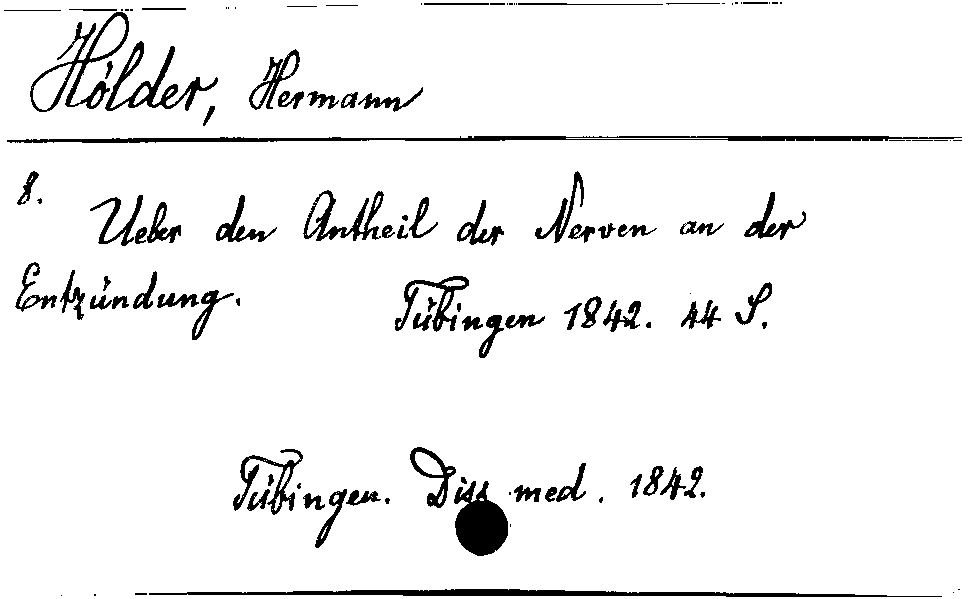 Hölder, Hermann
8.
Ueber den Antheil der Nerven an der
Entzündung. Tübingen 1842. 44 S.
Tübingen. Diss med. 1842.